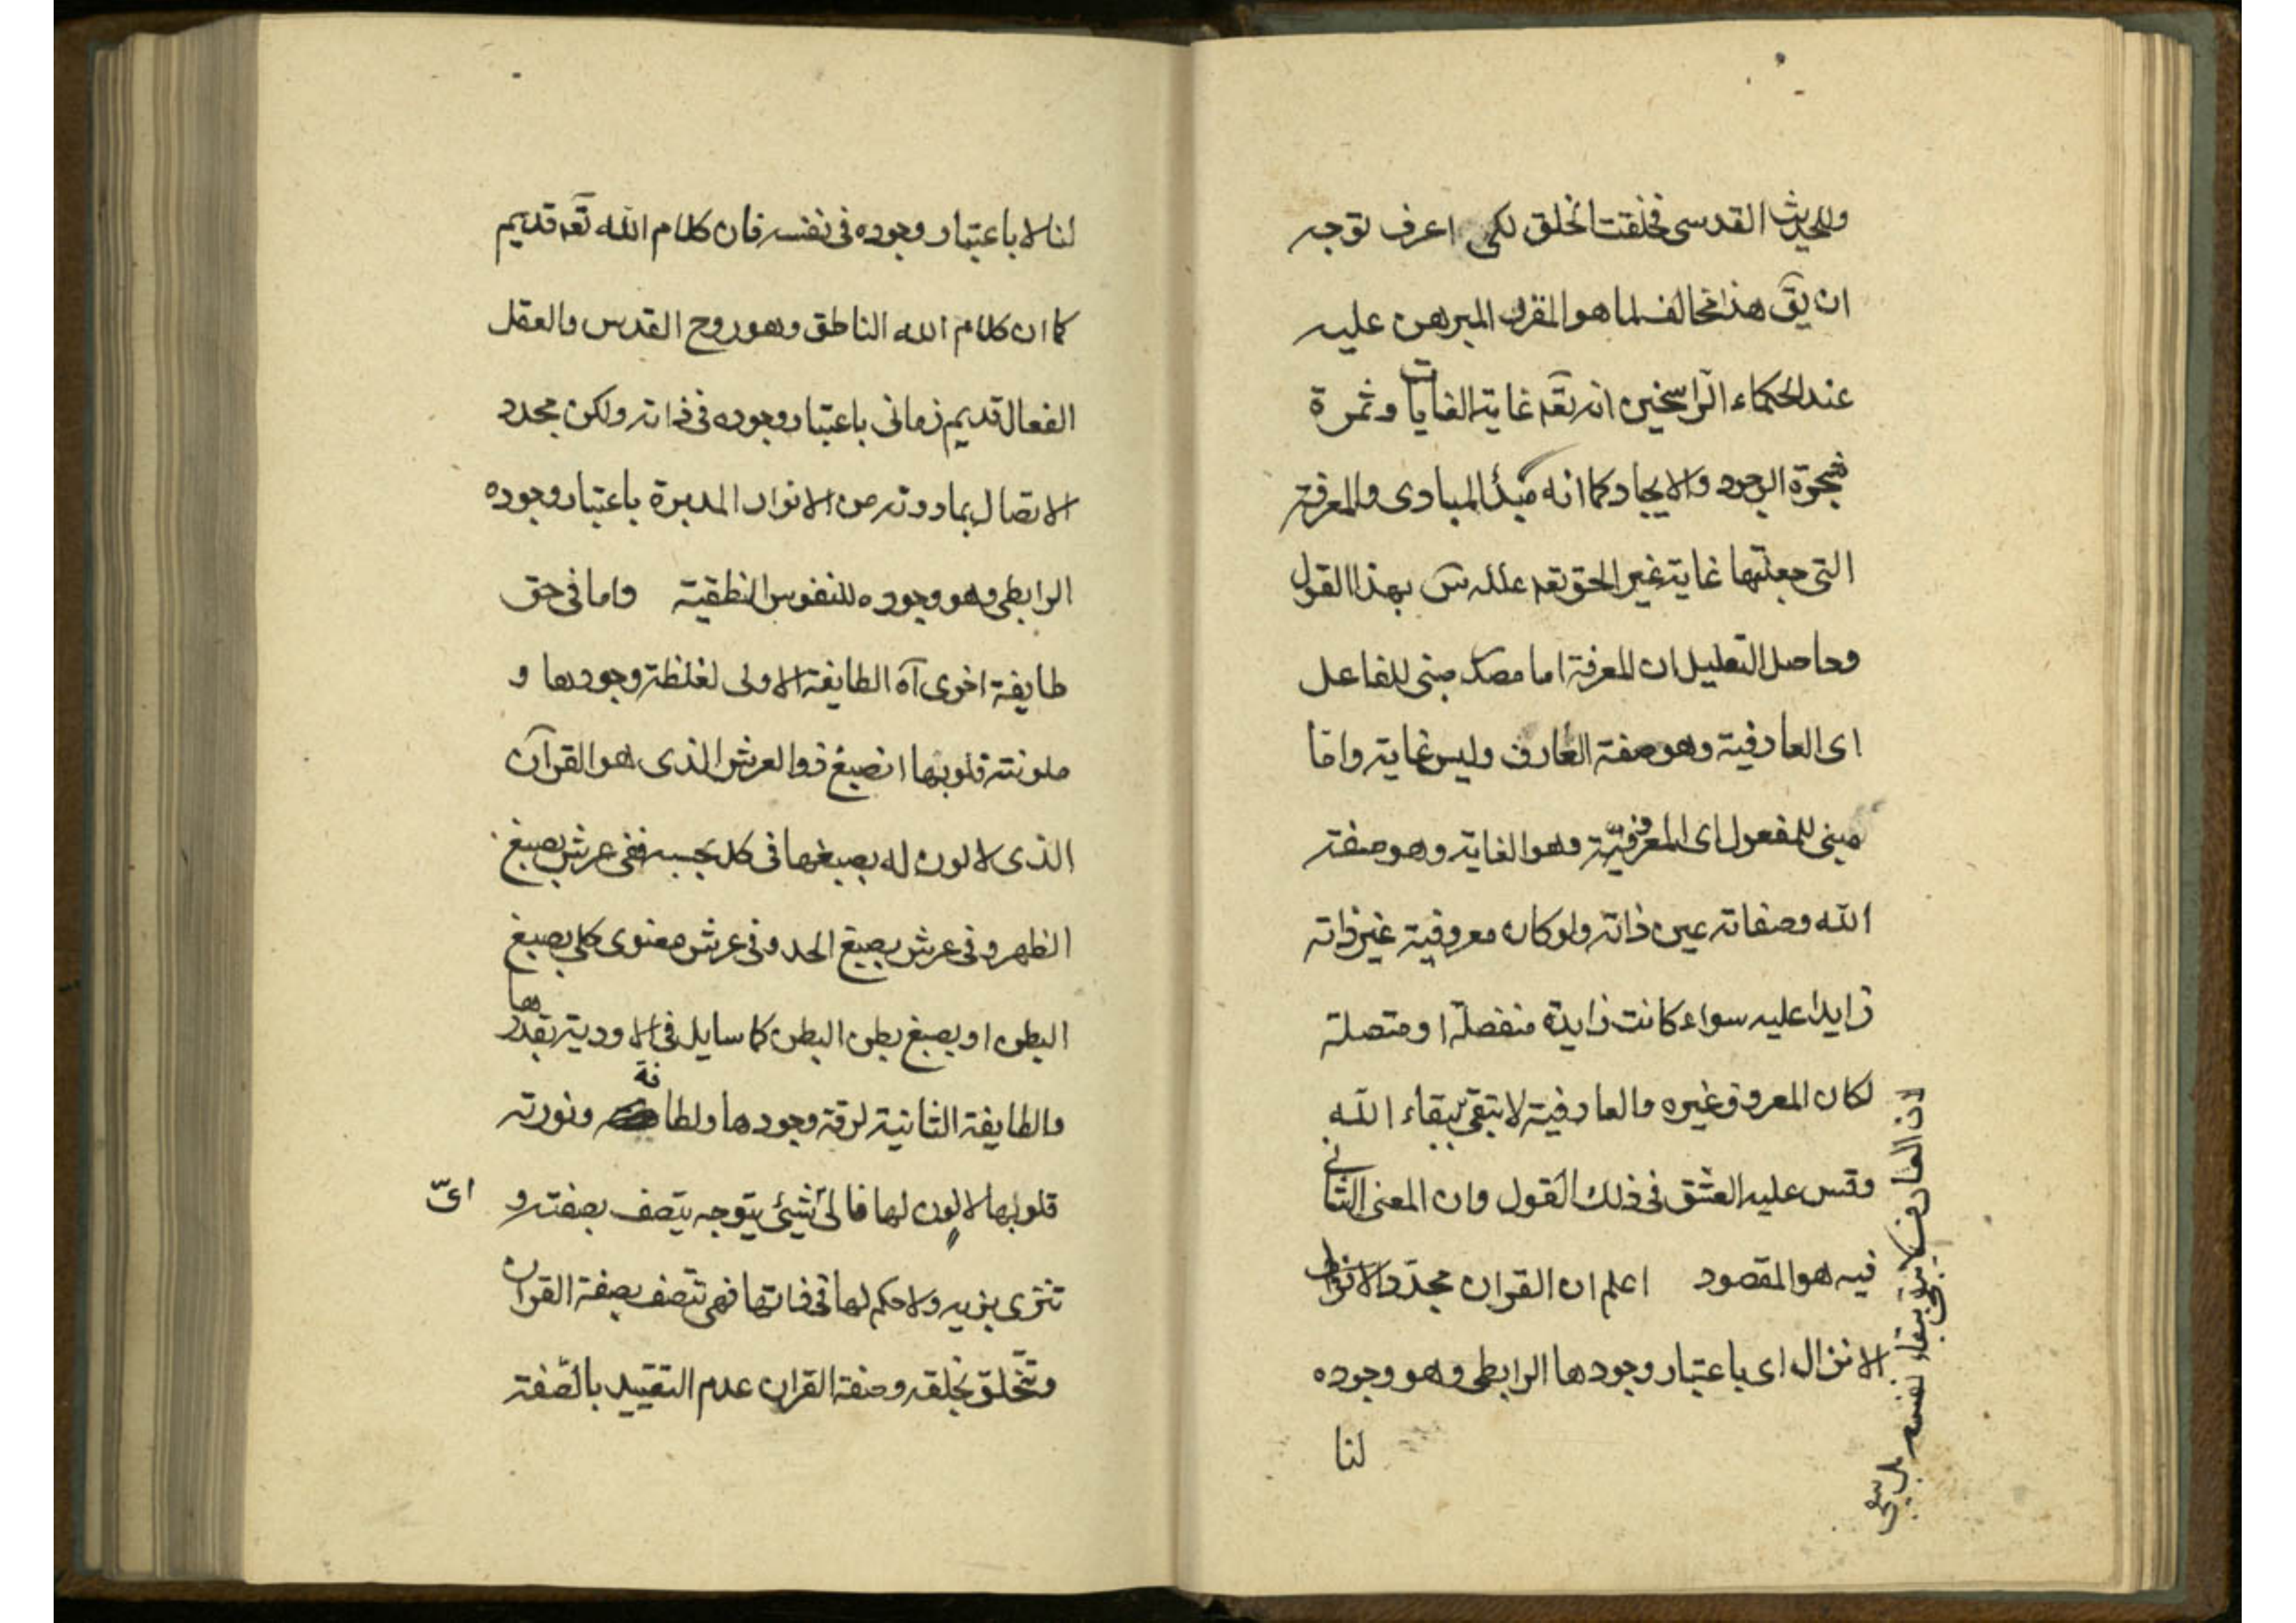 وللحديث القدسى فخلقت الخلق لكى اعرف توجيه
ان يق هذا مخالف لما هو المقرر المبرهن عليه
عند الحكماء الراسخين انه تعه غاية الغايات وثمرة
شجرة الوجود والايجاد كما انه مبدأ المبادى والمعرفة
التى جعلتها غاية غير الحق تعه بهذا القول
وحاصل التعليل ان المعرفة اما مصدر مبنى للفاعل
اى العارفية وهو صفة العارف وليس غاية واما
مبنى للمفعول اى المعروفية وهو الغاية وهو صفة
الله وصفاته عين ذاته ولو كان معروفية غير ذاته
زايدا عليه سواء كانت زايدة منفصلة او متصلة
لكان المعروف غيره والعارفية لا تبقى ببقاء الله
لان العارف لا يبقى ببقاء نفسه بل يبقى
وقس عليه العشق فى ذلك القول وان المعنى الثانى
فيه هو المقصود اعلم ان القران مجدد الانزال
الانزال اى باعتبار وجودها الرابطى وهو وجوده
لنا
لنا لا باعتبار وجوده فى نفسه فان كلام الله تعه قديم
كما ان كلام الله الناطق وهو روح القدس والعقل
الفعال قديم زمانى باعتبار وجوده فى ذاته ولكن مجدد
الاتصال بمادونه من الانوار المدبرة باعتبار وجوده
الرابطى وهو وجوده للنفوس النطقية واما فى حق
طايفة اخرى آه الطايفة الاولى لغلظة وجودها و
ملونته قلوبها انصبغ ذو العرش الذى هو القرآن
الذى لا لون له بصبغها فى كل بحسبه ففى عرش بصبغ
الظهر وفى عرش بصبغ الحد وفى عرش معنوى كلى بصبغ
البطن او بصبغ بطن البطن كما سايل فى الاودية بقدرها
والطايفة الثانية لرقة وجودها ولطافة ونورته
قلوبها لا لون لها فالى شيئ يتوجه يتصف بصفته و
اىّ
تتزى بزيه ولا حكم لها فى ذاتها فهى تتصف بصفة القران
وتتخلق بخلقه وصفة القران عدم التقييد بالصفة